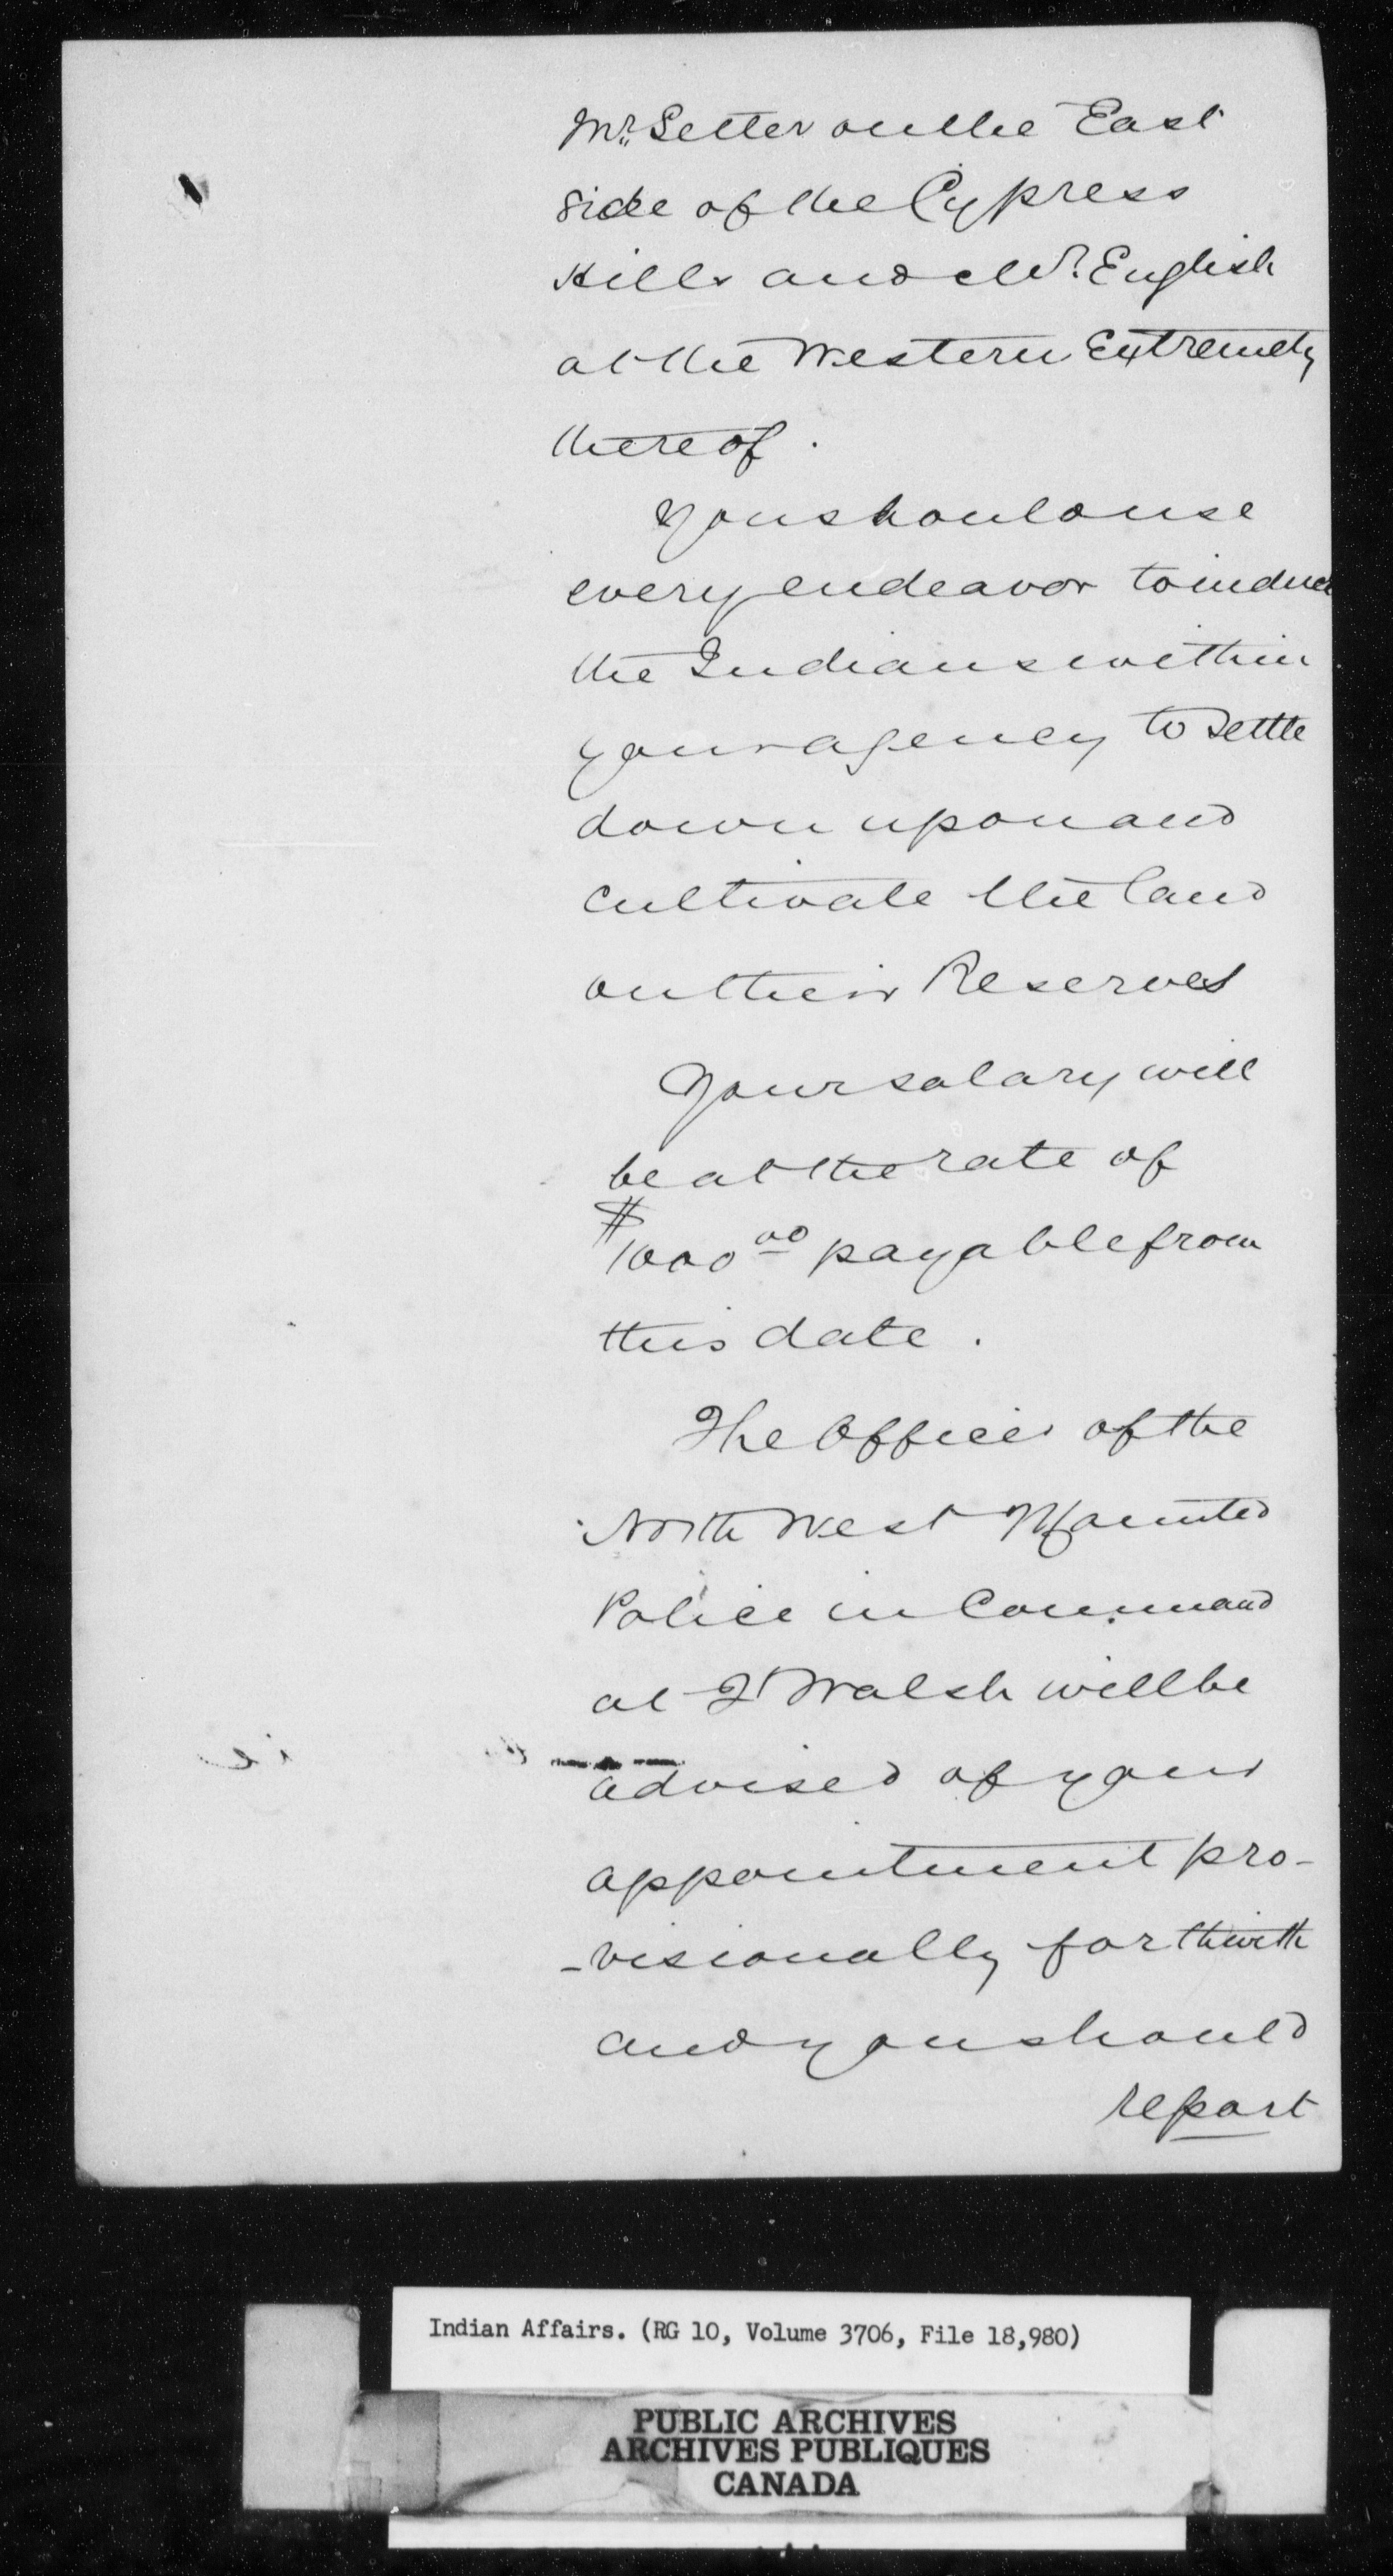 Mr. Setter on the East
side of the Cypress
Hills and Mr. English
at the Western Extremety
thereof.
You should use
every endeavor to induce
the Indians within
your agency to settle
down upon and
cultivate the land
on their Reserves
Your salary will
be at the rate of
$1000 00 payable from
this date.
The Officer of the
North West Mounted
Police in Command
at Ft Walsh will be
advised of your
appointment pro-
-visionally forthwith
and you should
report
Indian Affairs. (RG 10, Volume 3706, File 18,980)
PUBLIC ARCHIVES
ARCHIVES PUBLIQUES
CANADA